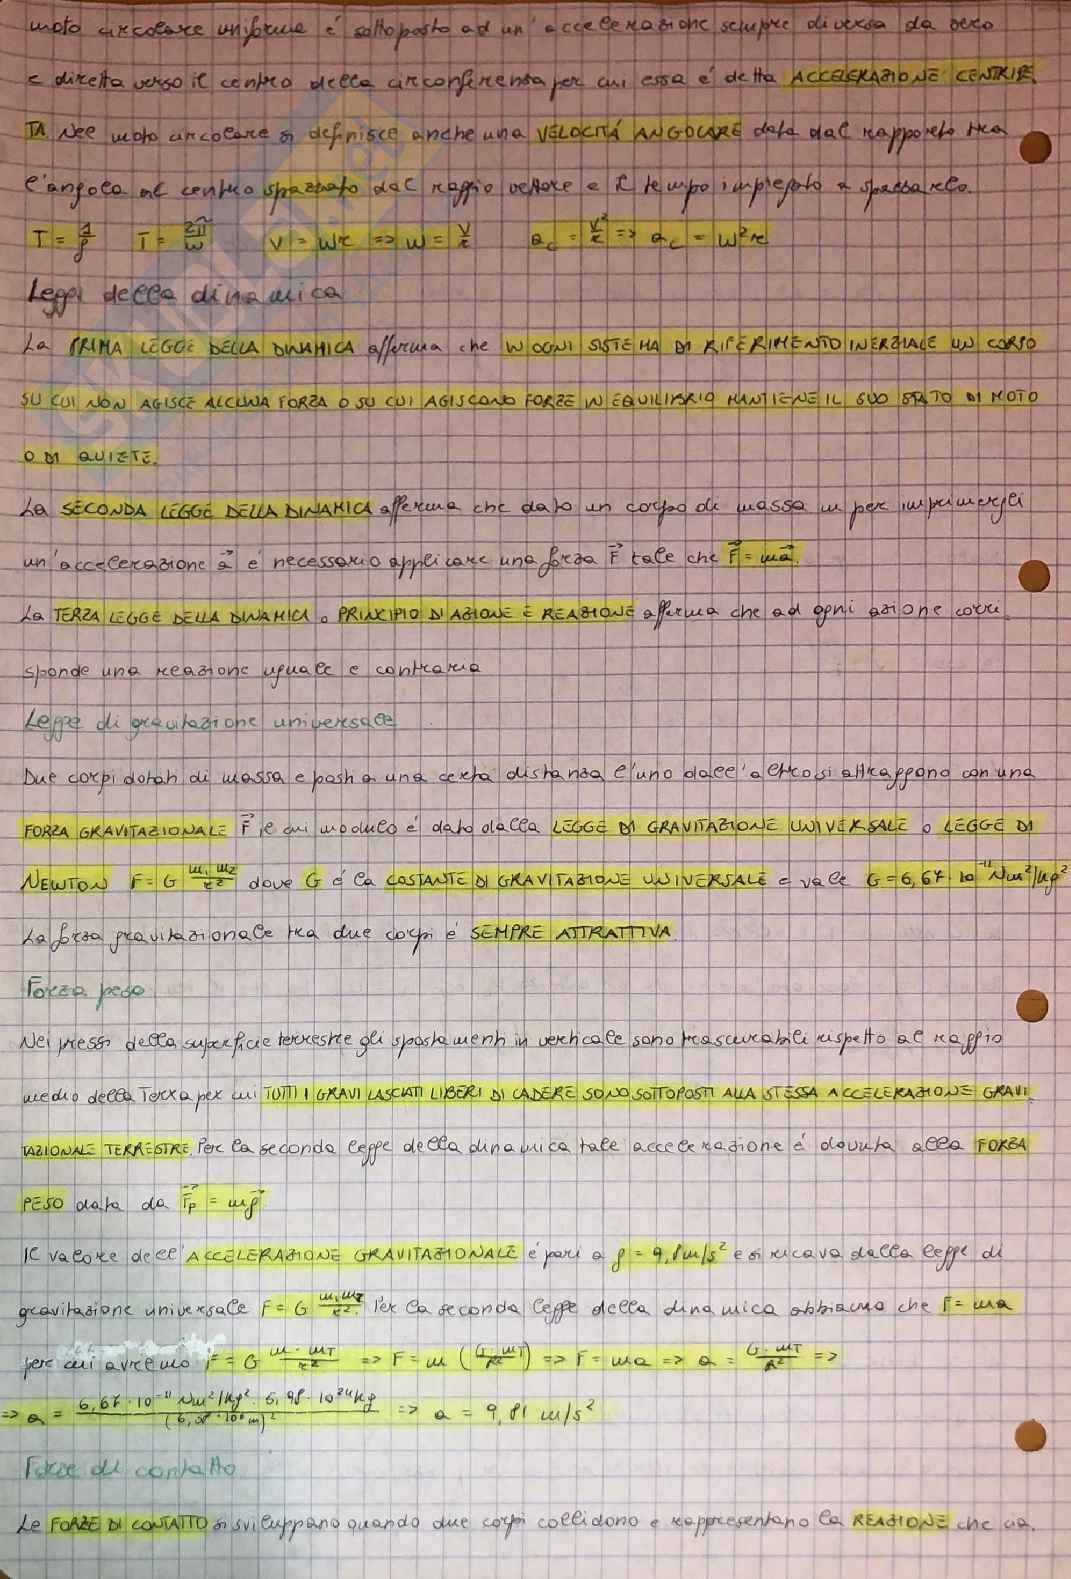 moto circolare uniforme é sottoposto ad un'accelerazione sempre diversa da zero
e diretta verso il centro della circonferenza per cui essa é detta ACCELERAZIONE CENTRIPE.
TA. Nel moto circolare si definisce anche una VELOCITÁ ANGOLARE data dal rapporto tra
l'angolo al centro spazzato dal raggio vettore e il tempo impiegato a spazzarlo.
T = 1/f T = 2π/ω v = ωr => ω = v/r a_c = v²/r => a_c = ω²r
Leggi della dinamica
La PRIMA LEGGE DELLA DINAMICA afferma che IN OGNI SISTEMA DI RIFERIMENTO INERZIALE UN CORPO
SU CUI NON AGISCE ALCUNA FORZA O SU CUI AGISCONO FORZE IN EQUILIBRIO MANTIENE IL SUO STATO DI MOTO
O DI QUIETE.
La SECONDA LEGGE DELLA DINAMICA afferma che dato un corpo di massa m per imprimergli
un'accelerazione a⃗ é necessario applicare una forza F⃗ tale che F⃗ = ma⃗.
La TERZA LEGGE DELLA DINAMICA o PRINCIPIO DI AZIONE E REAZIONE afferma che ad ogni azione corri.
sponde una reazione uguale e contraria
Legge di gravitazione universale
Due corpi dotati di massa e posti a una certa distanza l'uno dall'altro si attraggono con una
FORZA GRAVITAZIONALE F⃗ il cui modulo é dato dalla LEGGE DI GRAVITAZIONE UNIVERSALE o LEGGE DI
NEWTON F = G m₁m₂/r² dove G é la COSTANTE DI GRAVITAZIONE UNIVERSALE e vale G = 6,67·10⁻¹¹ Nm²/kg²
La forza gravitazionale tra due corpi é SEMPRE ATTRATTIVA.
Forza peso
Nei pressi della superficie terrestre gli spostamenti in verticale sono trascurabili rispetto al raggio
medio della Terra per cui TUTTI I GRAVI LASCIATI LIBERI DI CADERE SONO SOTTOPOSTI ALLA STESSA ACCELERAZIONE GRAVI.
TAZIONALE TERRESTRE. Per la seconda legge della dinamica tale accelerazione é dovuta alla FORZA
PESO data da F⃗p = mg⃗.
Il valore dell'ACCELERAZIONE GRAVITAZIONALE é pari a g = 9,8 m/s² e si ricava dalla legge di
gravitazione universale F = G m₁m₂/r². Per la seconda legge della dinamica abbiamo che F = ma
per cui avremo F = G m·mT/r² => F = m (G·mT/R²) => F = ma => a = G·mT/R² =>
=> a = 6,67·10⁻¹¹ Nm²/kg² · 5,98·10²⁴kg/(6,38·10⁶m)² => a = 9,81 m/s²
Forze di contatto
Le FORZE DI CONTATTO si sviluppano quando due corpi collidono e rappresentano la REAZIONE che va.